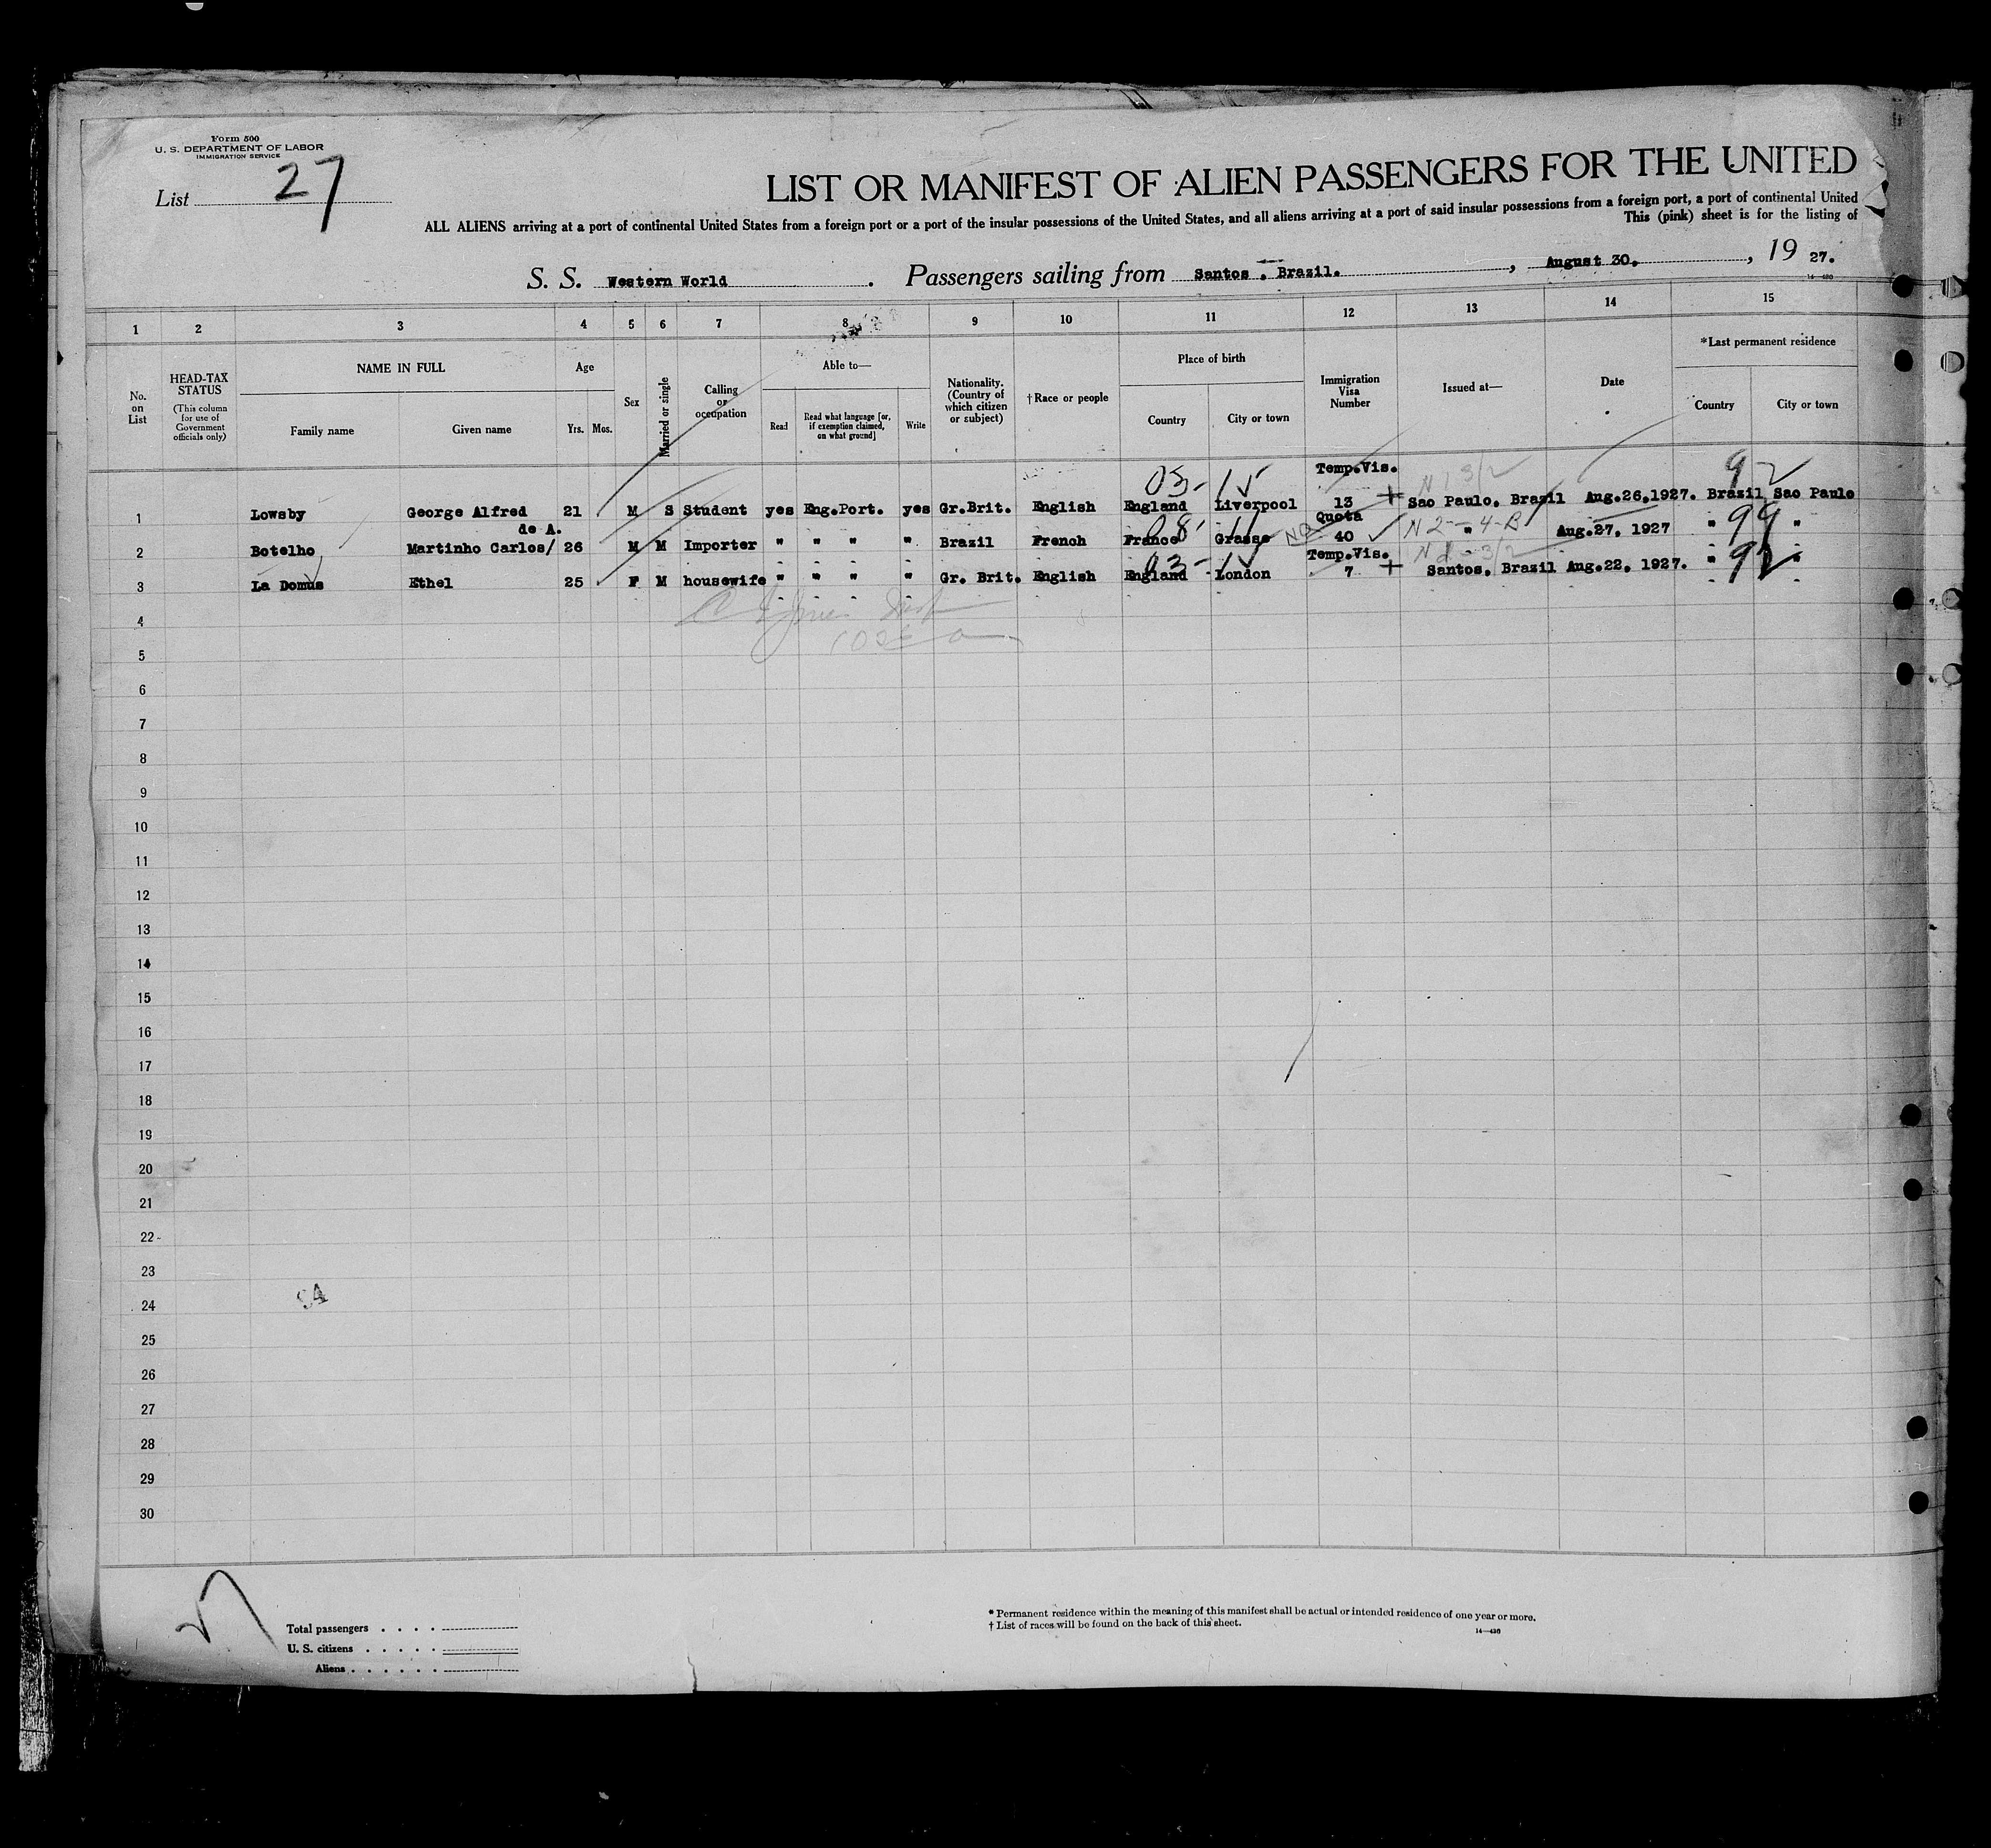 Form 500
U. S. DEPARTMENT OF LABOR
IMMIGRATION SERVICE
List 27
LIST OR MANIFEST OF ALIEN PASSENGERS FOR THE UNITED
ALL ALIENS arriving at a port of continental United States from a foreign port or a port of the insular possessions of the United States, and all aliens arriving at a port of said insular possessions from a foreign port, a port of continental United
This (pink) sheet is for the listing of
S. S. Western World. Passengers sailing from Santos, Brazil., August 30, 1927.
14—430
1 2 3 4 5 6 7 8 9 10 11 12 13 14 15
No. on List
HEAD-TAX STATUS
(This column for use of Government officials only)
NAME IN FULL
Family name Given name
Age
Yrs. Mos.
Sex
Married or single
Calling or occupation
Able to—
Read
Read what language [or, if exemption claimed, on what ground]
Write
Nationality. (Country of which citizen or subject)
†Race or people
Place of birth
Country City or town
Immigration Visa Number
Issued at—
Date
*Last permanent residence
Country City or town
03- 92
Temp.Vis.
1 Lowsby George Alfred 21 M S Student yes Eng.Port. yes Gr.Brit. English England Liverpool 13 + Sao Paulo. Brazil Aug.26,1927. Brazil Sao Paulo
de A. 08' Quota N 2-4-B 99
2 Botelho Martinho Carlos/ 26 M M Importer " " " " Brazil French France Grasse NQ 40 " Aug.27, 1927 " "
03- Temp.Vis. 92
3 La Domus Ethel 25 F M housewife " " " " Gr. Brit. English England London 7 + Santos, Brazil Aug.22, 1927. " "
4
5
6
7
8
9
10
11
12
13
14
15
16
17
18
19
20
21
22
23
24
25
26
27
28
29
30
27
Total passengers
U. S. citizens
Aliens
* Permanent residence within the meaning of this manifest shall be actual or intended residence of one year or more.
† List of races will be found on the back of this sheet.
14—430